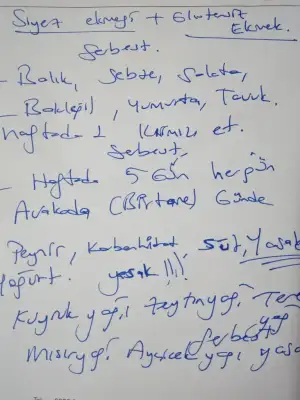 Siyez ekmeği + Glutensiz
Ekmek.
Serbest.
- Balık, Sebze, Salata,
- Bakleğil, Yumurta, Tavuk.
haftada 1 Kırmızı et.
Serbest,
- Haftada 5 Gün hergün
Avakado (Bir tane) Günde
Peynir, Karbonhidrat süt, Yasak
Yoğurt. yasak !!!
Kuyruk yağı, Zeytinyağı Tere
yağ
Serbest
Mısıryağı Ayçiçek yağı yasa